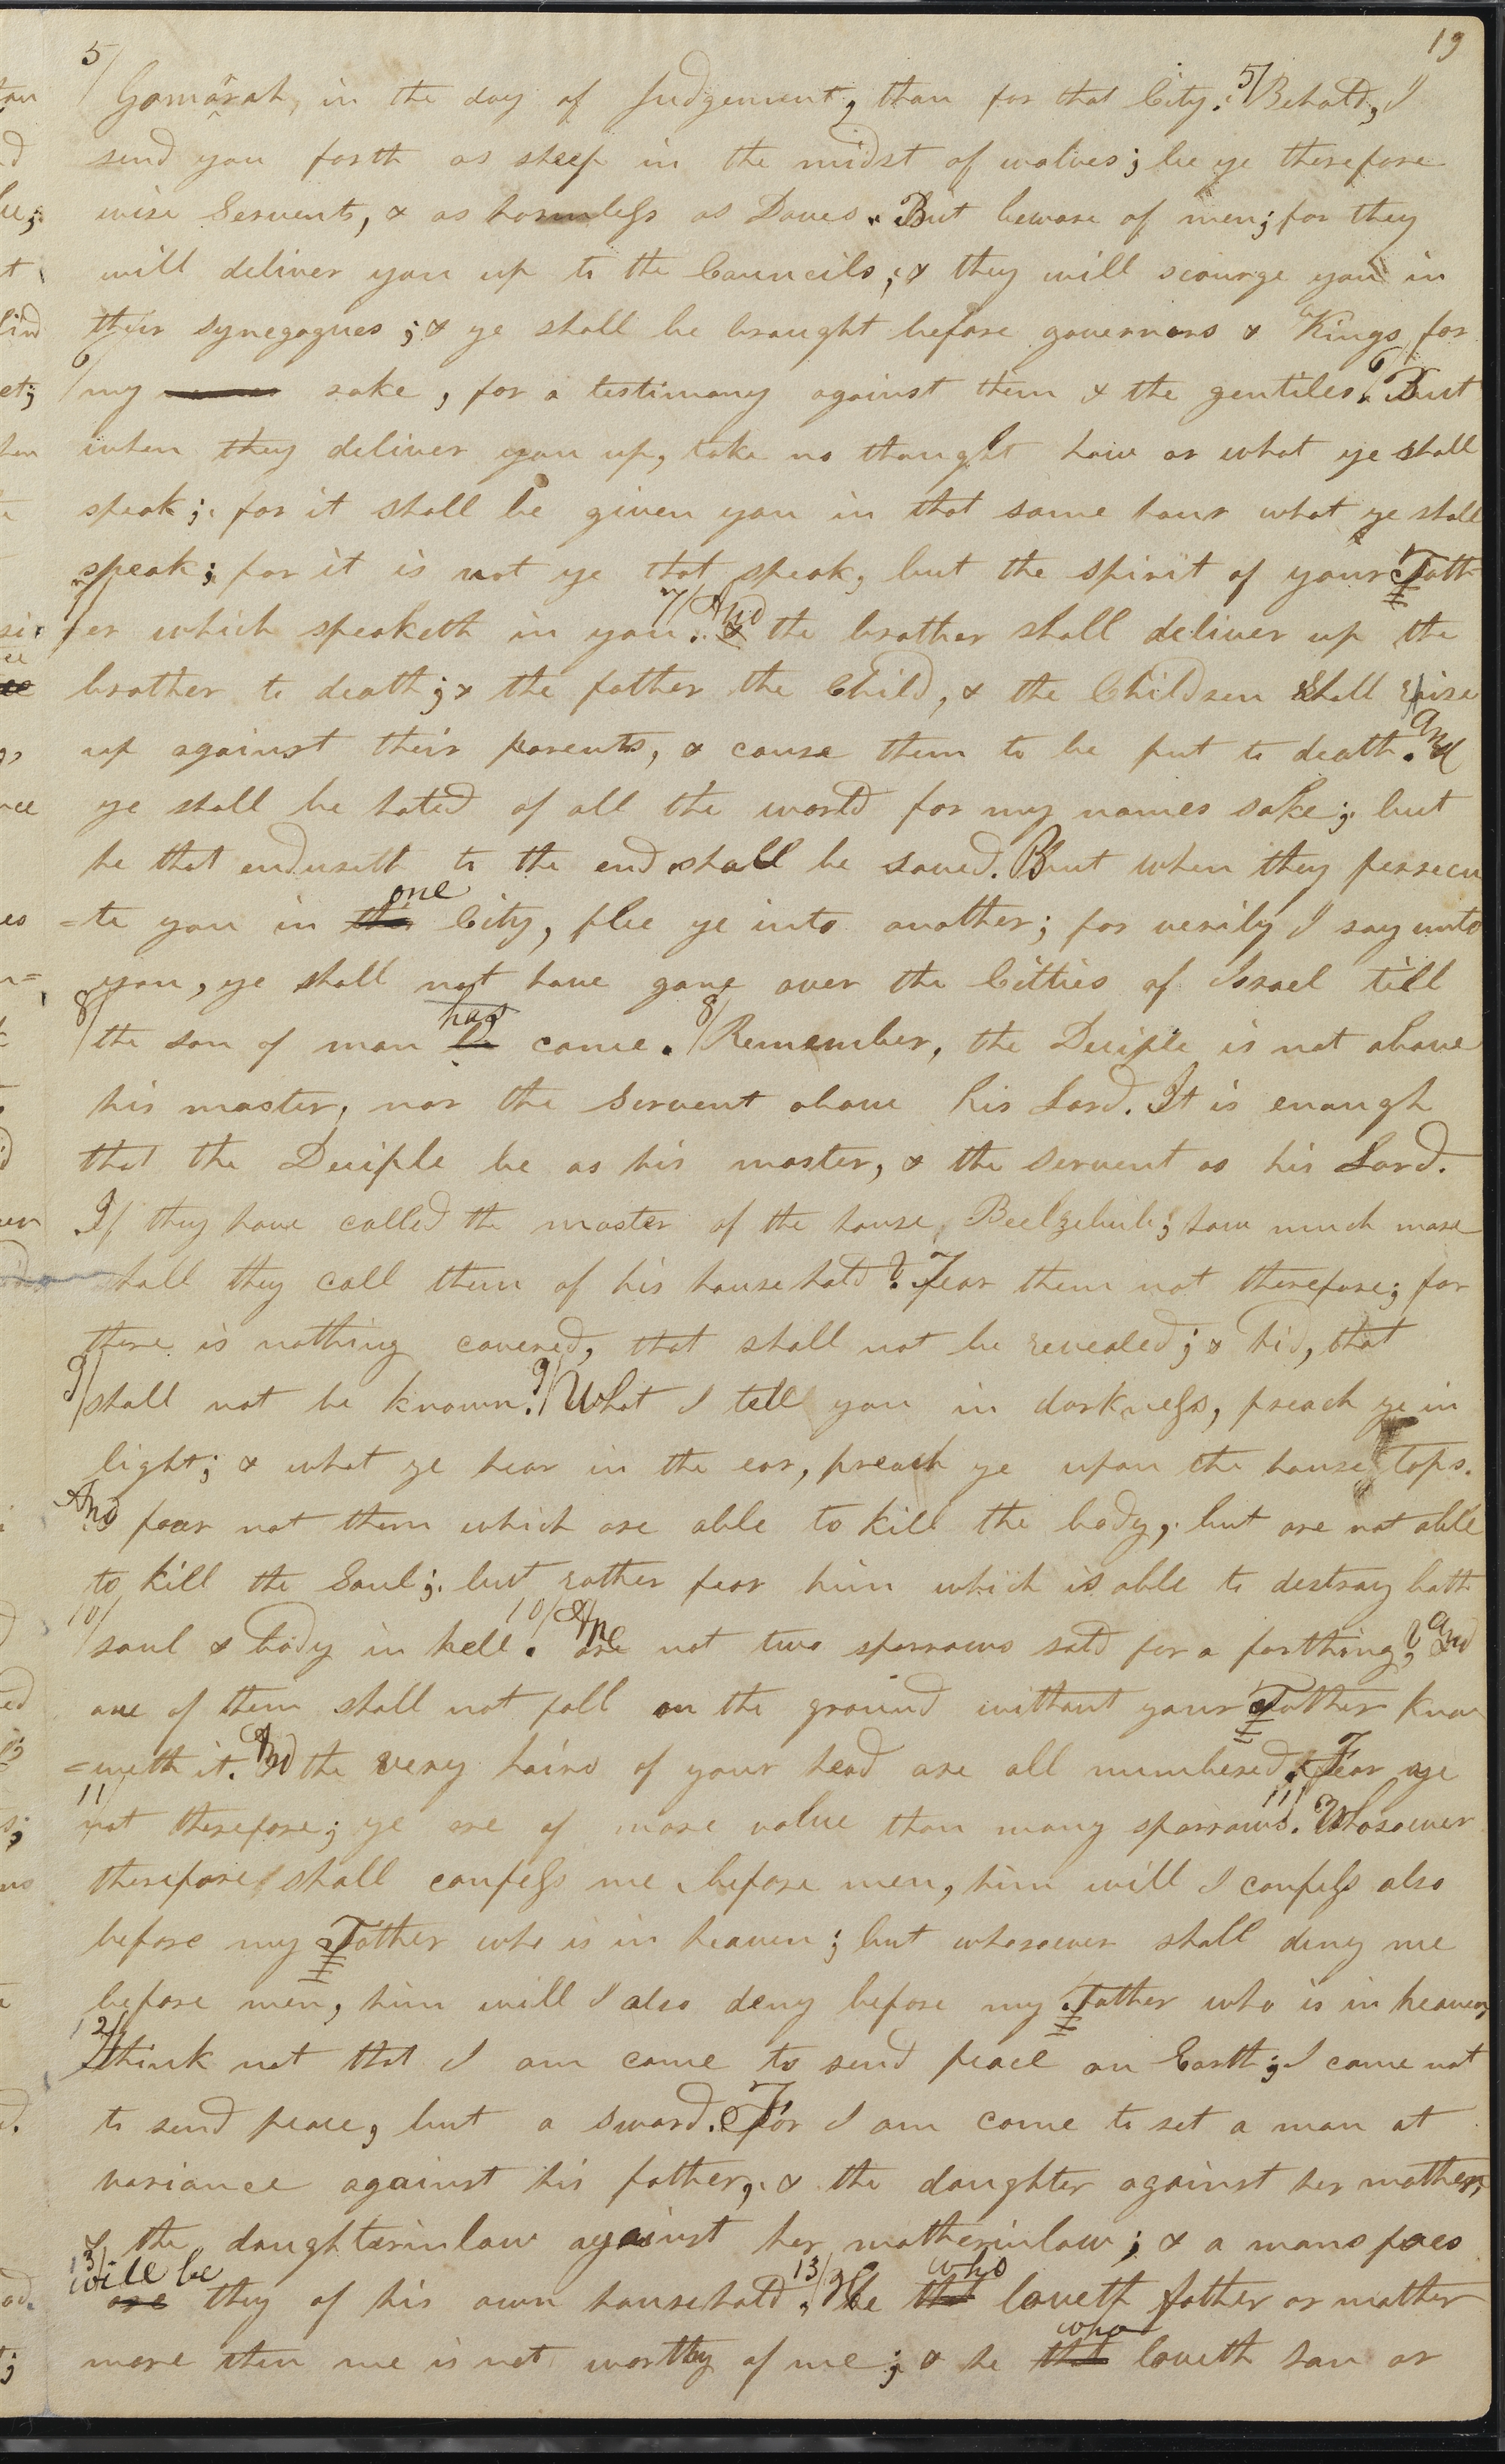 19
5/ Gomorah, in the day of Judgement, than for that City. 5/ Behold, I
send you forth as sheep in the midst of wolves; be ye therefore
wise Servents, & as harmless as Doves. But beware of men; for they
will deliver you up to the Councils, & they will scourge you in
their synegogues; & ye shall be braught before governors & Kings for
6/ my sake, for a testimony against them & the gentiles. 6/ But
when they deliver you up, take no thought how or what ye shall
speak; for it shall be given you in that same hour what ye shall
speak; for it is not ye that speak, but the spirit of your Fath
er which speaketh in you. 7/ And the brother shall deliver up the
brother to death; & the father the Child, & the Children shall rise
up against their parents, & cause them to be put to death. And
ye shall be hated of all the world for my names sake; but
he that endureth to the end shall be saved. But when they persecu
=te you in the one City, flee ye into another; for verily I say unto
you, ye shall not have gone over the Citties of Israel till
8/ the son of man be has come. 8/ Remember, the Deciple is not above
his master, nor the Servent above his Lord. It is enough
that the Deciple be as his master, & the servent as his Lord.
If they have called the master of the house, Beelzebub; how much more
shall they call them of his household? Fear them not therefore; for
there is nothing covered, that shall not be revealed; & hid, that
9/ shall not be known. 9/ What I tell you in darkness, preach ye in
light; & what ye hear in the ear, preach ye upon the house tops.
And fear not them which are able to kill the body, but are not able
to kill the Soul; but rather fear him which is able to destroy both
10/ soul & body in hell. 10/ Are not two sparrows sold for a farthing? And
one of them shall not fall on the ground without your Father know
=eth it. And the very hairs of your head are all numbered. Fear ye
11 not therefore; ye are of more value than many sparrows. 11/ Whosoever
therefore shall confess me before men, him will I confess also
before my Father who is in heaven; but whosoever shall deny me
before men, him will I also deny before my Father who is in heaven
12/ Think not that I am come to send peace on Earth; I came not
to send peace, but a sword. For I am come to set a man at
variance against his father, & the daughter against her mother,
& the daughterinlaw against her motherinlaw; & a mans foes
13/ are will be they of his own household. 13/ He that who loveth father or mother
more then me is not worthy of me; & he that who loveth son or